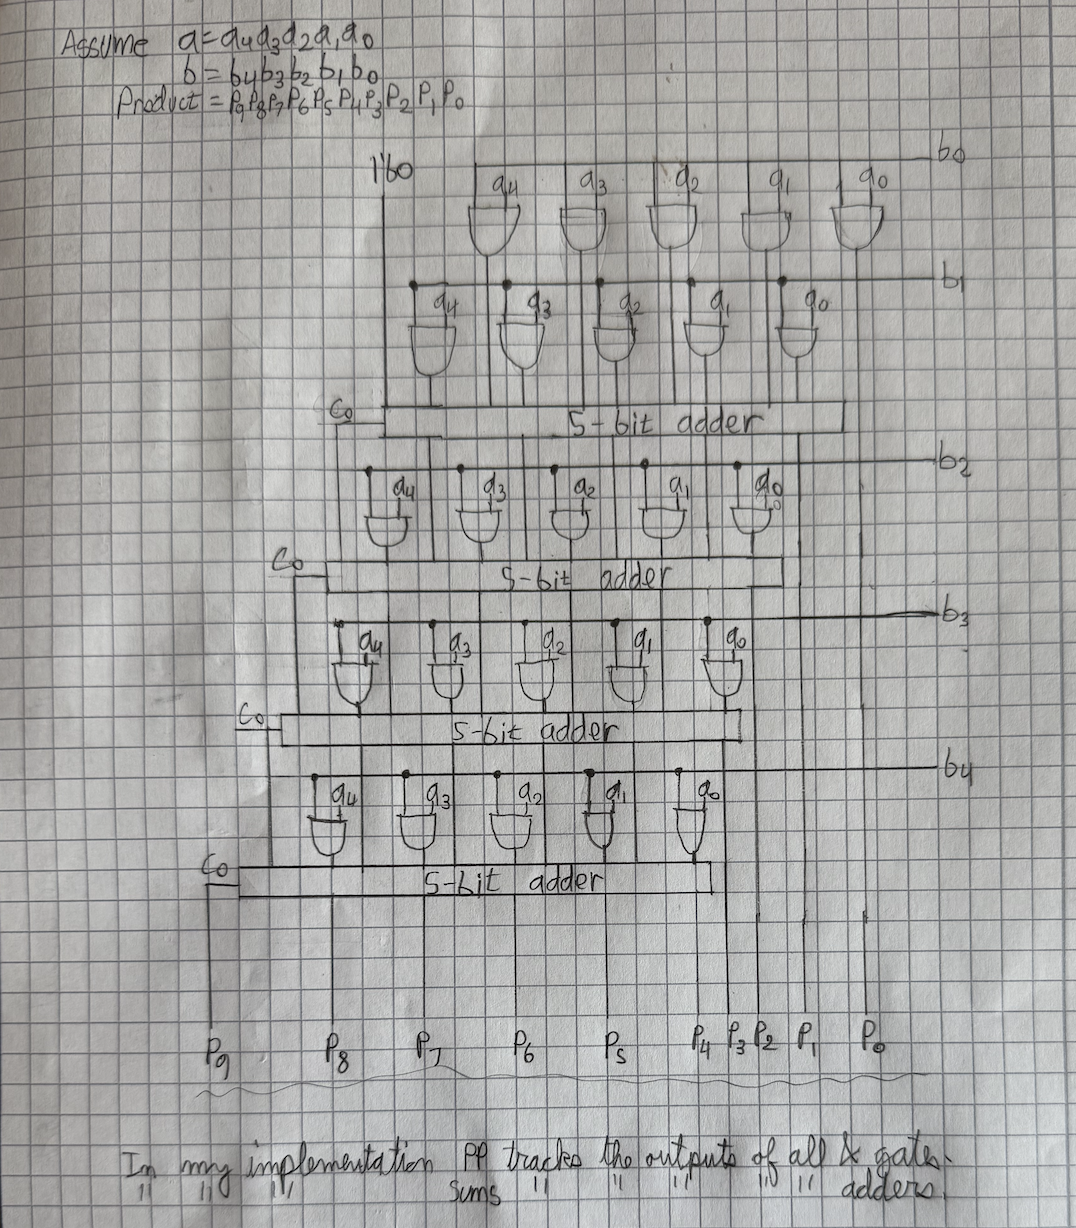 Assume a=a4a3a2a1a0
b=b4b3b2b1b0
Product=P9P8P7P6P5P4P3P2P1P0
1'b0
b0
a4 a3 a2 a1 a0
b1
a4 a3 a2 a1 a0
Co 5-bit adder
b2
a4 a3 a2 a1 a0
Co 5-bit adder
b3
a4 a3 a2 a1 a0
Co 5-bit adder
b4
a4 a3 a2 a1 a0
Co 5-bit adder
P9 P8 P7 P6 P5 P4 P3 P2 P1 P0
In my implementation PP tracks the outputs of all & gates.
" " " sums " " " " " adders.